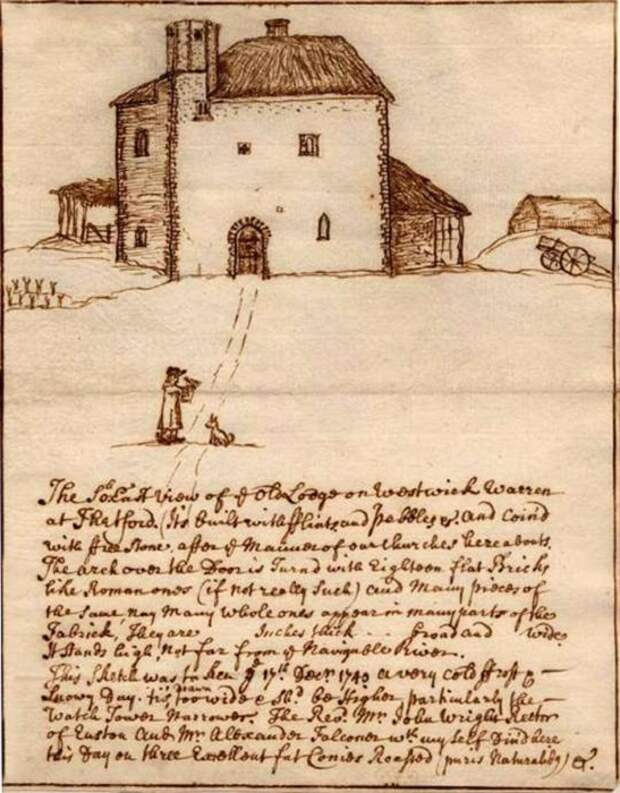 The So. East View of ye Old Lodge on Westwick Warren
at Thetford. (Its built with fflints and pebbles &c. and Coin'd
with ffree Stone, after ye Manner of our Churches hereabouts.
The arch over the Door is Turn'd with Eighteen flat Bricks
like Roman ones (if not really Such) and Many pieces of
the Same, nay Many whole ones appear in many parts of the
Fabrick, They are Inches thick . . . broad and wide.
It Stands high, Not far from ye Navigable River.
This Sketch was taken ye 17th. Decr. 1740 a very cold ffrost &
Snowy Day. tis drawn too wide & Shd. be Higher particularly the
Watch Tower Narrower. The Revd. Mr. John Wright Rector
of Euston and Mr. Alexander Falconer wth. my Self Din'd here
this Day on three Excellent fat Conies Roasted (puris Naturalibq) &c.